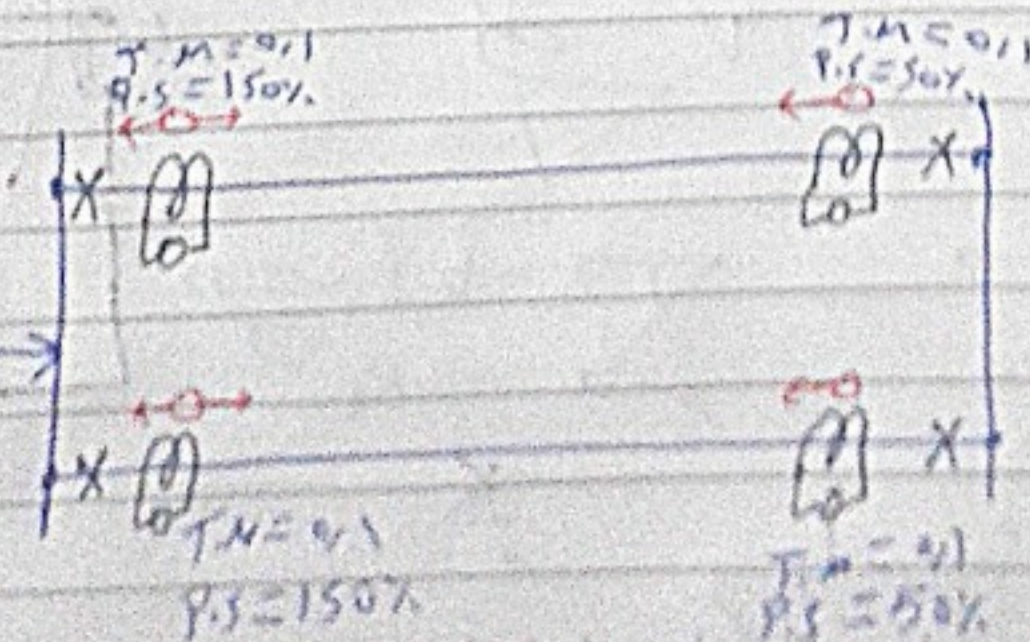 T.M = 0,1
P.S = 150%.
T.M = 0,1
P.S = 50%.
X
X
X
X
T.M = 0,1
P.S = 150%
T.M = 0,1
P.S = 50%